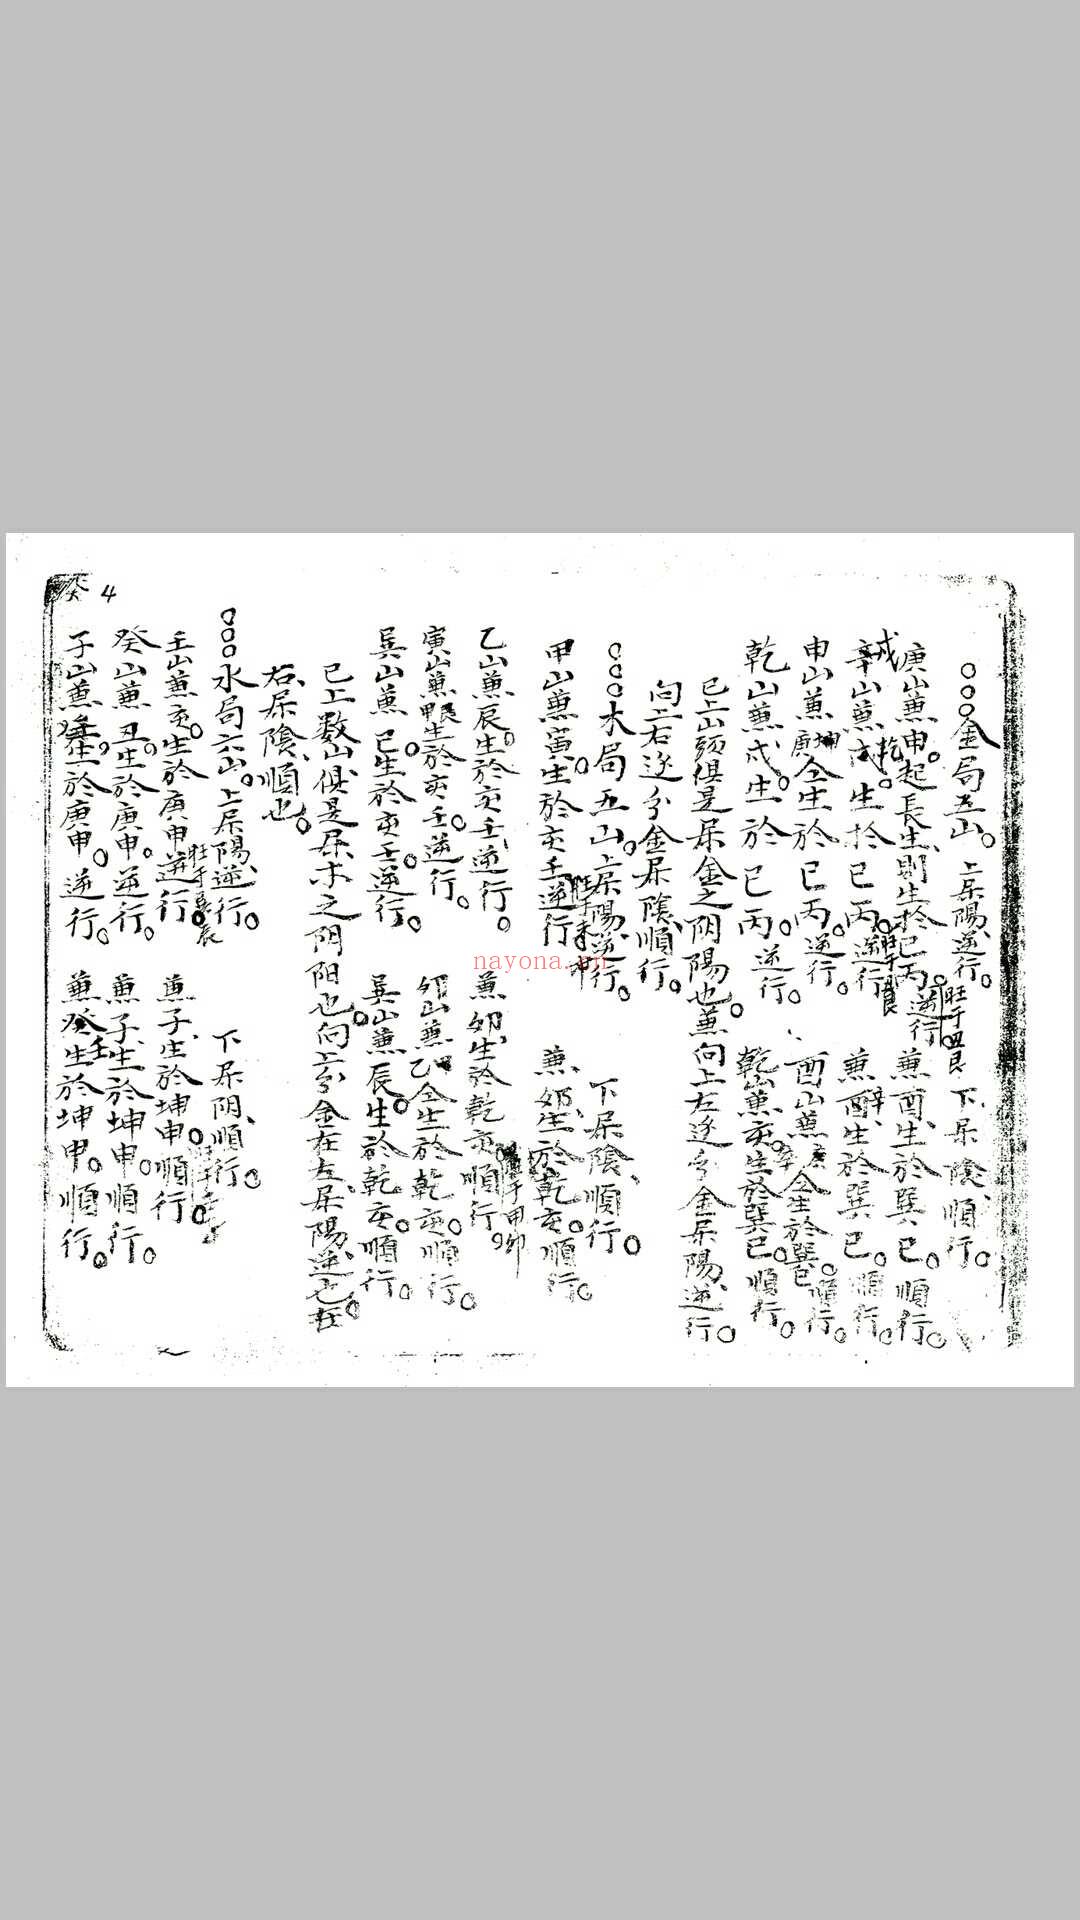 ○○○金局五山。上屎陽、逆行。 下屎陰、順行。
庚山兼申。起長生、則生於巳丙。逆行 兼酉、生於巽巳。順行。
旺于丑艮
辛山兼戌。生於巳丙。逆行 兼酉、生於巽巳。順行。
戌 乾
申山兼庚坤仝生於巳丙。逆行。 酉山兼辛庚仝生於巽巳。順行。
乾山兼戌。生於巳丙。逆行。 乾山兼亥。生於巽巳。順行。
已上山頭俱是屎金之阴陽也。兼向上左逐分金屎陽、逆行。
向上右逐分金屎陰、順行。
○○○木局五山。上屎陽、逆行。 下屎陰、順行。
甲山兼寅。生於亥壬逆行。 兼卯、生於乾亥。順行。
乙山兼辰。生於亥壬、逆行。 兼卯、生於乾亥。順行。
寅山兼甲艮生於亥壬。逆行。 卯山兼乙甲仝生於乾亥。順行。
巽山兼巳。生於亥壬。逆行。 巽山兼辰。生於乾亥。順行。
已上數山俱是屎木之阴阳也。向上分金在左、屎陽、逆也。在
右、屎陰、順也。
○○○水局六山。上屎陽、逆行。 下屎阴、順行。
壬山兼亥。生於庚申。逆行。 兼子、生於坤申。順行。
癸山兼丑。生於庚申。逆行。 兼子、生於坤申。順行。
子山兼壬。生於庚申。逆行。 兼癸、生於坤申。順行。
癸 4
nayona.cn